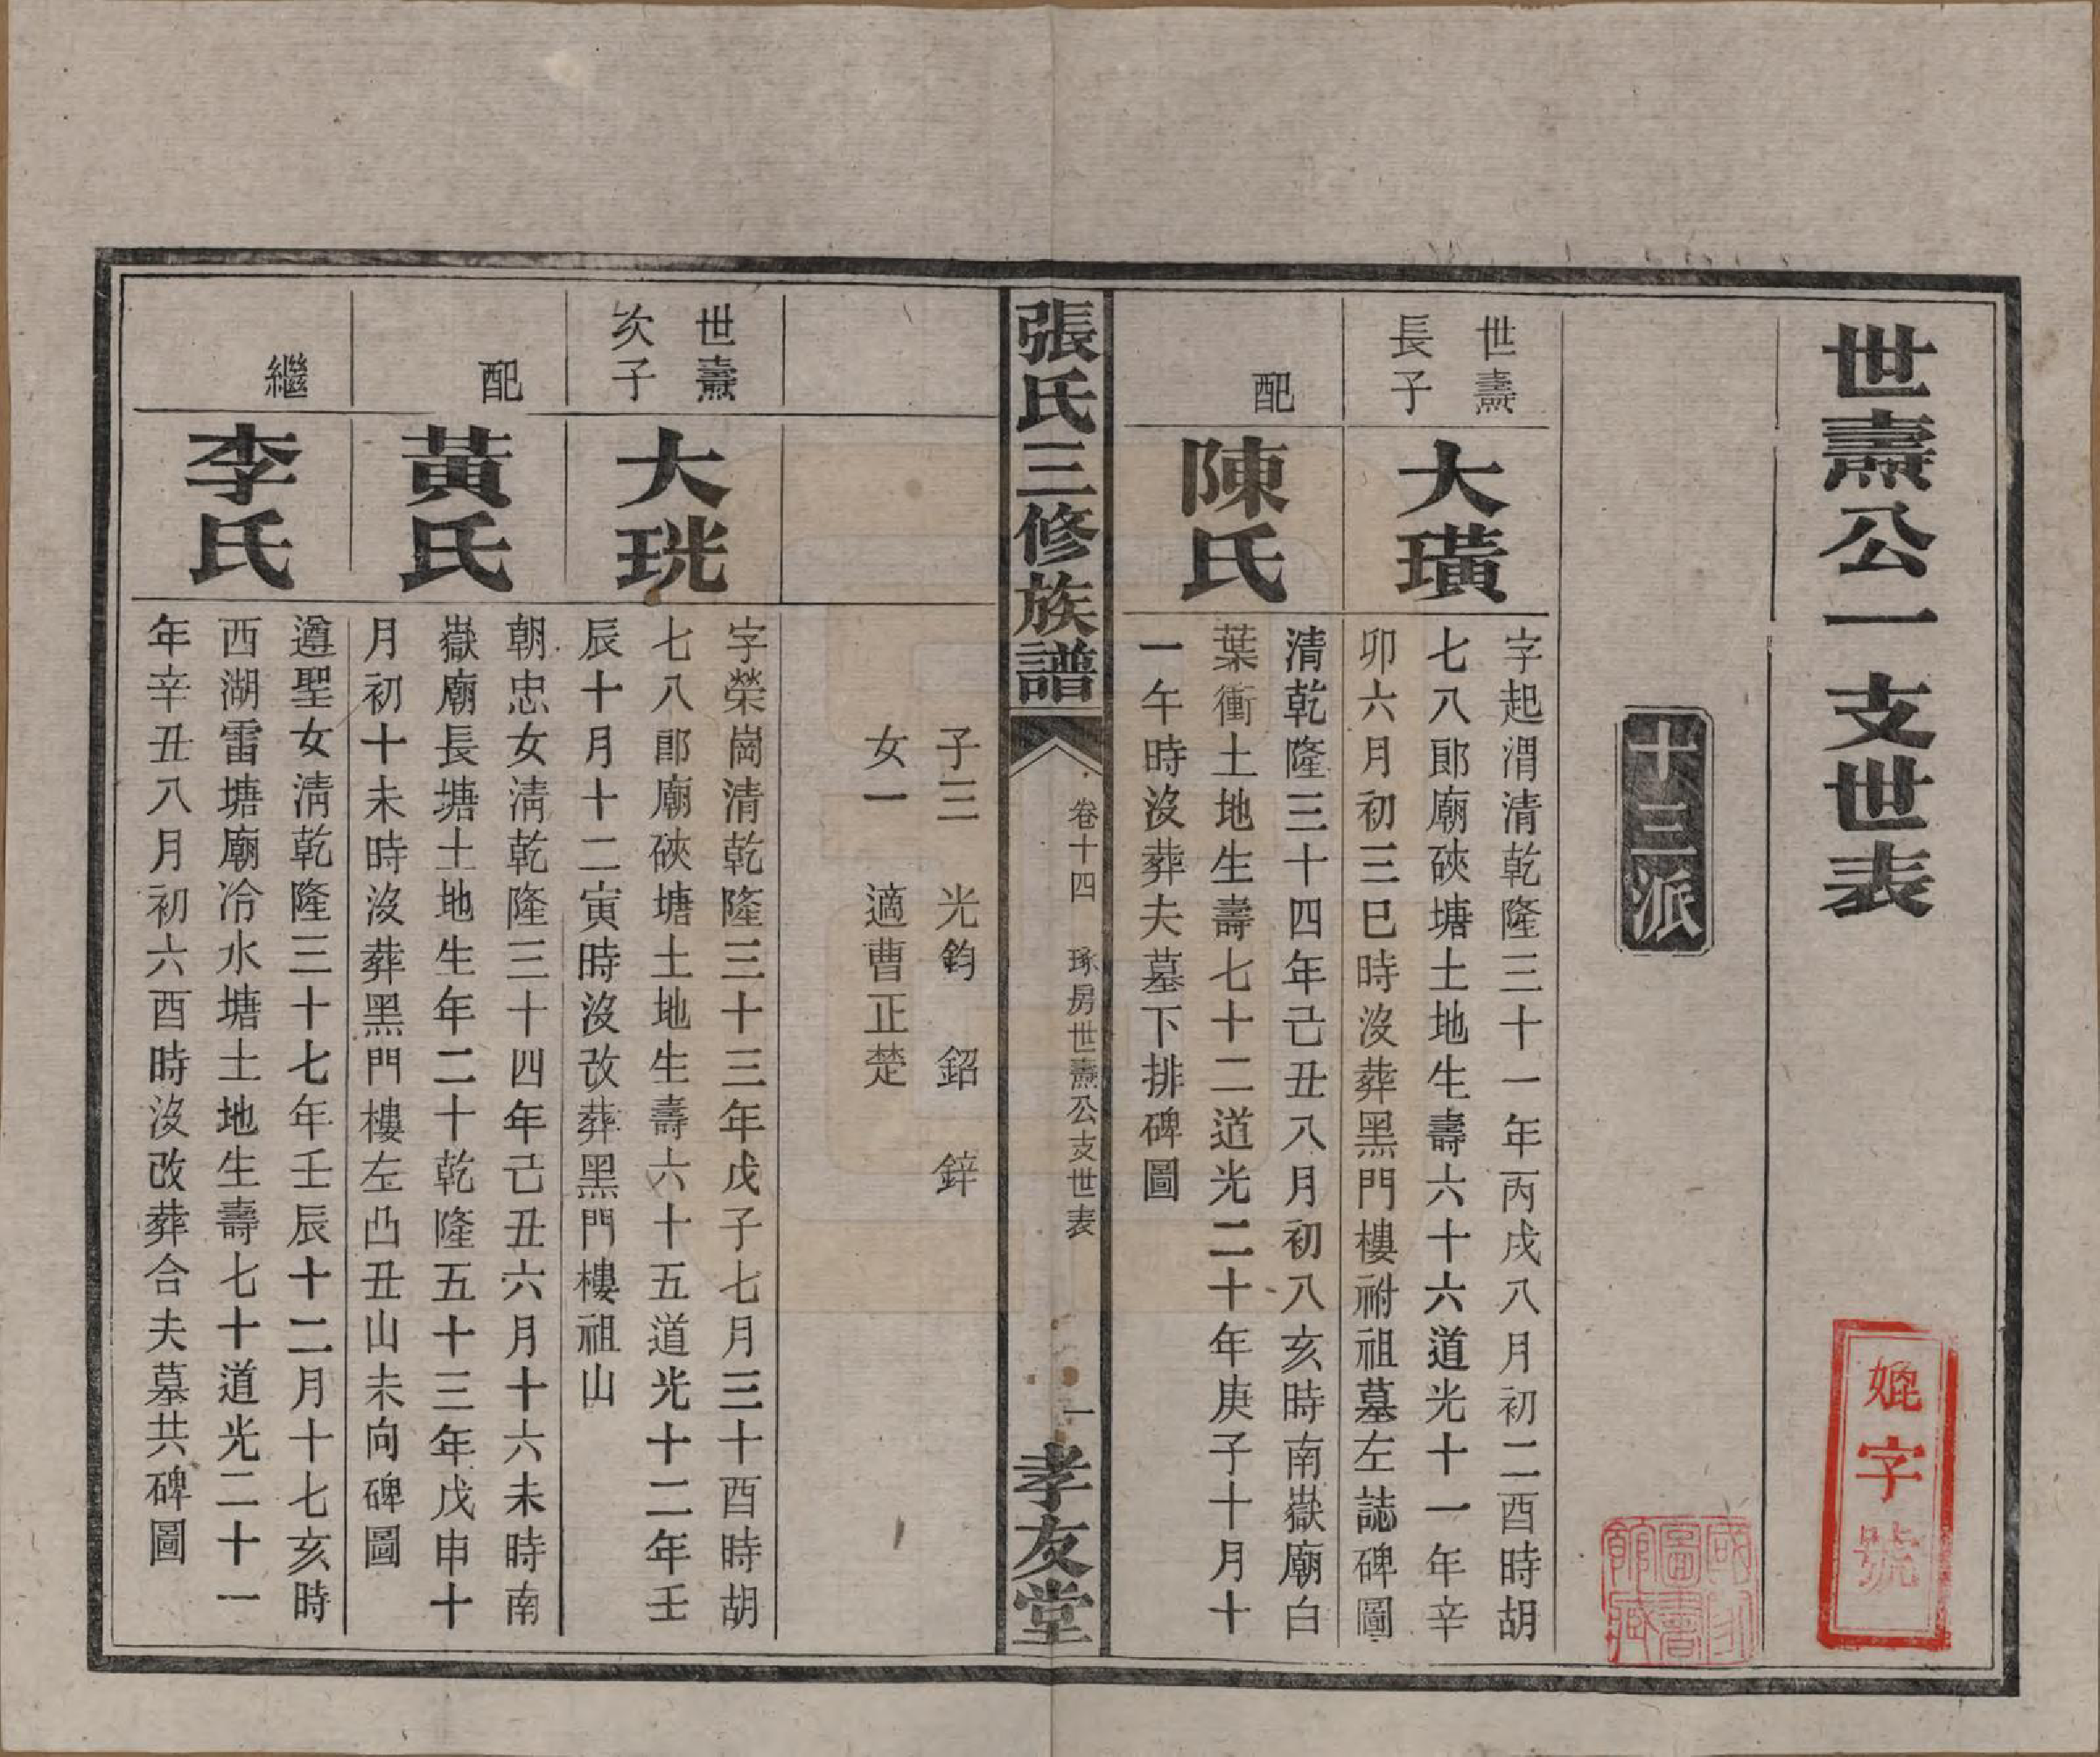 世燾公一支世表
字號
十三派
世燾
長子
大璜
字起渭清乾隆三十一年丙戌八月初二酉時胡
七八郎廟硤塘土地生壽六十六道光十一年辛
卯六月初三巳時沒葬黑門樓祔祖墓左誌碑圖
配
陳氏
清乾隆三十四年己丑八月初八亥時南嶽廟白
葉衝土地生壽七十二道光二十年庚子十月十
一午時沒葬夫墓下排碑圖
張氏三修族譜
卷十四
琢房世燾公支世表
一
孝友堂
子三 光鈞 鉊 鋅
女一 適曹正楚
世燾
次子
大珖
字榮崗清乾隆三十三年戊子七月三十酉時胡
七八郎廟硤塘土地生壽六十五道光十二年壬
辰十月十二寅時沒改葬黑門樓祖山
配
黃氏
朝忠女清乾隆三十四年己丑六月十六未時南
嶽廟長塘土地生年二十乾隆五十三年戊申十
月初十未時沒葬黑門樓左凸丑山未向碑圖
繼
李氏
遵聖女清乾隆三十七年壬辰十二月十七亥時
西湖雷塘廟冷水塘土地生壽七十道光二十一
年辛丑八月初六酉時沒改葬合夫墓共碑圖